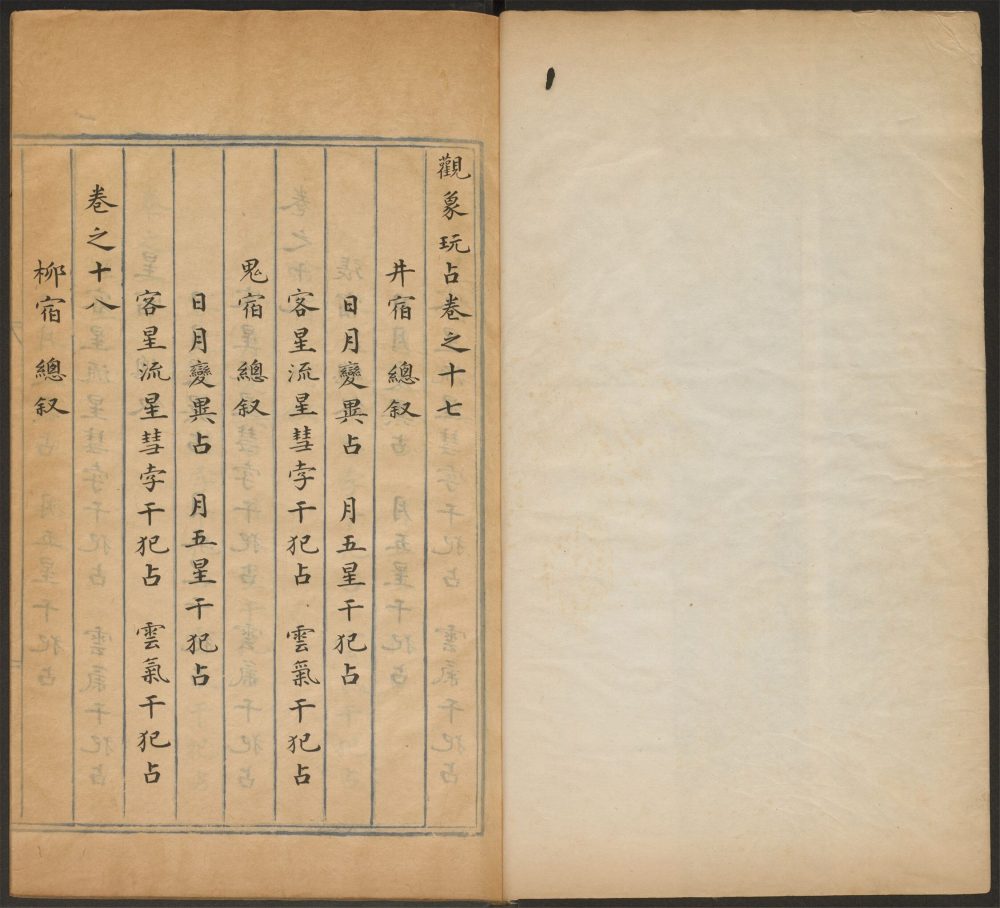 觀象玩占卷之十七
井宿總叙
日月變異占 月五星干犯占
客星流星彗孛干犯占 雲氣干犯占
鬼宿總叙
日月變異占 月五星干犯占
客星流星彗孛干犯占 雲氣干犯占
卷之十八
柳宿總叙